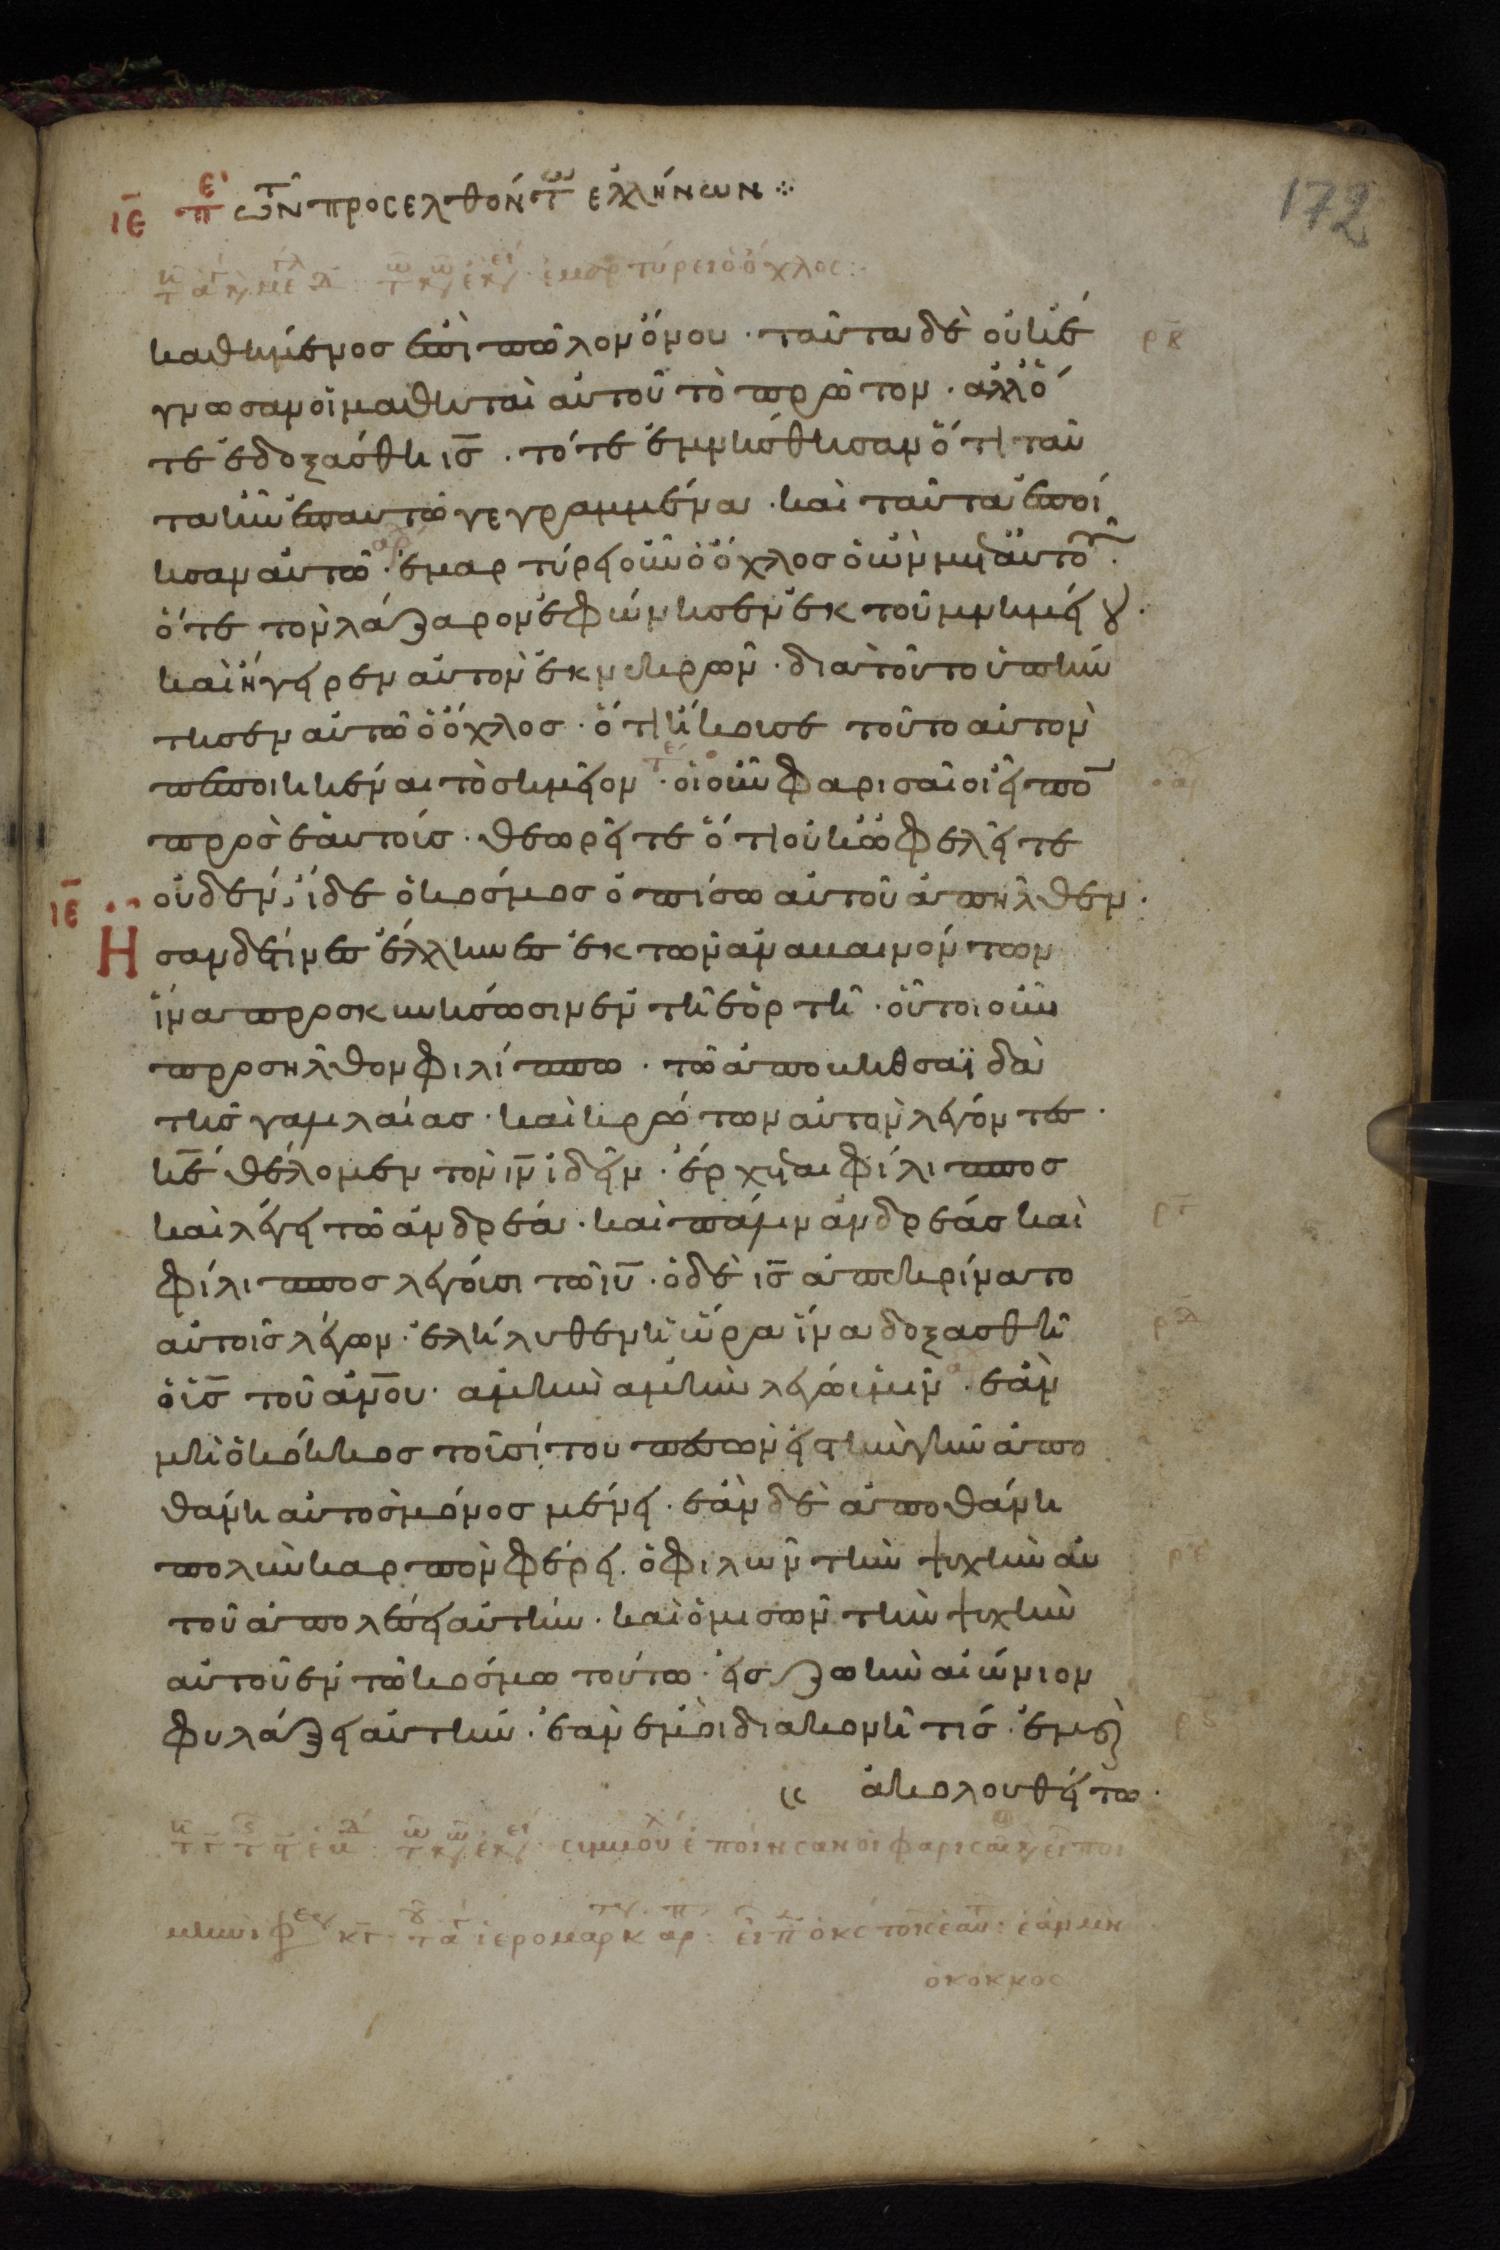 172
ιε̄ πε τῶν προσελθόντων ἑλλήνων
ἐμαρτύρει ὁ ὄχλος:
καθήμενος ἐπὶ πῶλον ὄνου · ταῦτα δὲ οὐκ ἔ
γνωσαν οἱ μαθηταὶ αὐτοῦ τὸ πρῶτον · ἀλλ' ὅ
τε ἐδοξάσθη ις̄ · τότε ἐμνήσθησαν ὅτι ταῦ
τα ἦν ἐπ αυτῶ γεγραμμένα · καὶ ταῦτα ἐποί
ησαν αὐτῶ · ἐμαρτύρει οὖν ὁ ὄχλος ὁ ὢν μετ αὐτοῦ ·
ὅτε τὸν λάζαρον ἐφώνησεν ἐκ τοῦ μνημείου ·
καὶ ἤγειρεν αὐτὸν ἐκ νεκρῶν · διατοῦτο ὑπήν
τησεν αὐτῶ ὁ ὄχλος · ὅτι ἤκουσε τοῦτο αὐτὸν
πεποιηκέναι τὸ σημεῖον · οἱ οὖν φαρισαῖοι εἶπον
πρὸς ἑαυτούς · θεωρεῖτε ὅτι οὐκ ὠφελεῖτε
οὐδέν · ἴδε ὁ κόσμος ὀπίσω αὐτοῦ ἀπῆλθεν ·
ιε̄ Ἦσαν δέ τινες ἕλληνες ἐκ τῶν ἀναβαινόντων
ἵνα προσκυνήσωσιν ἐν τῆ ἑορτῆ · οὗτοι οὖν
προσῆλθον φιλίππω · τῶ ἀπο βηθσαϊδὰ
τῆς γαλιλαίας · καὶ ἠρώτων αὐτὸν λέγοντες ·
κ̄ε θέλομεν τὸν ιν̄ ἰδεῖν · ἔρχεται φίλιππος
καὶ λέγει τῶ ἀνδρέα · καὶ πάλιν ἀνδρέας καὶ
φίλιππος λέγουσι τῶ ιῡ · ὁ δὲ ις̄ ἀπεκρίνατο
αὐτοῖς λέγων · ἐλήλυθεν ἡ ὥρα ἵνα δοξασθῆ
ὁ υς̄ τοῦ ἀνου̅ · ἀμὴν ἀμὴν λέγω ὑμῖν · ἐὰν
μὴ ὁ κόκκος τοῦ σίτου πεσὼν εἰς τὴν γῆν ἀπο
θάνη αὐτὸς μόνος μένει · ἐὰν δὲ ἀποθάνη
πολὺν καρπὸν φέρει · ὁ φιλῶν τὴν ψυχὴν αὐ
τοῦ ἀπολέσει αὐτήν · καὶ ὁ μισῶν τὴν ψυχὴν
αὐτοῦ ἐν τῶ κόσμω τούτω · εἰς ζωὴν αἰώνιον
φυλάξει αὐτήν · ἐὰν ἐμοὶ διακονῆ τίς · ἐμοὶ
ἀκολουθείτω ·
ἐποίησαν οἱ φαρισαῖοι
ἱερομαρ ἐὰν μὴ
ὁ κόκκος